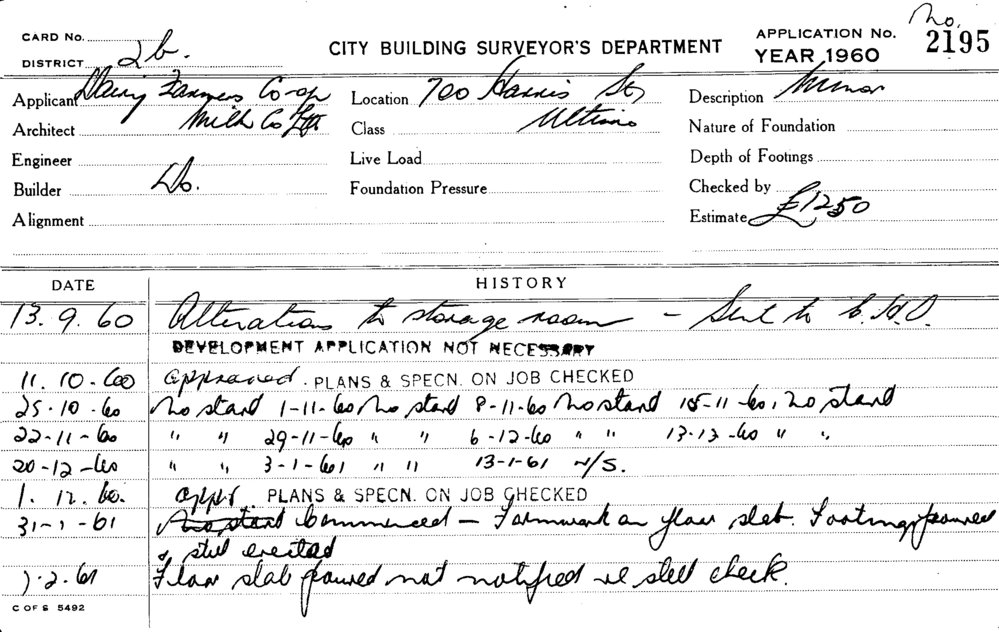 No.
CARD No.
DISTRICT 2b.
CITY BUILDING SURVEYOR'S DEPARTMENT
APPLICATION No. 2195
YEAR 1960
Applicant Dairy Farmers Co-op
Milk Co Ltd
Location 700 Harris St,
Ultimo
Description Minor
Architect
Class
Nature of Foundation
Engineer
Live Load
Depth of Footings
Builder Do.
Foundation Pressure
Checked by
Alignment
Estimate £1250
DATE HISTORY
13.9.60 Alterations to storage room - Sent to C.H.O.
DEVELOPMENT APPLICATION NOT NECESSARY
11.10-60 approved. PLANS & SPECN. ON JOB CHECKED
25-10-60 No start 1-11-60 No start 8-11-60 No start 15-11-60, No start
22-11-60 " " 29-11-60 " " 6-12-60 " " 13-12-60 " "
20-12-60 " " 3-1-61 " " 13-1-61 N/S.
1.12.60. appr PLANS & SPECN. ON JOB CHECKED
31-1-61 No start Commenced - Formwork on floor slab. Footings poured
& steel erected
7-2-61 Floor slab poured not notified re steel check.
C OF S 5492